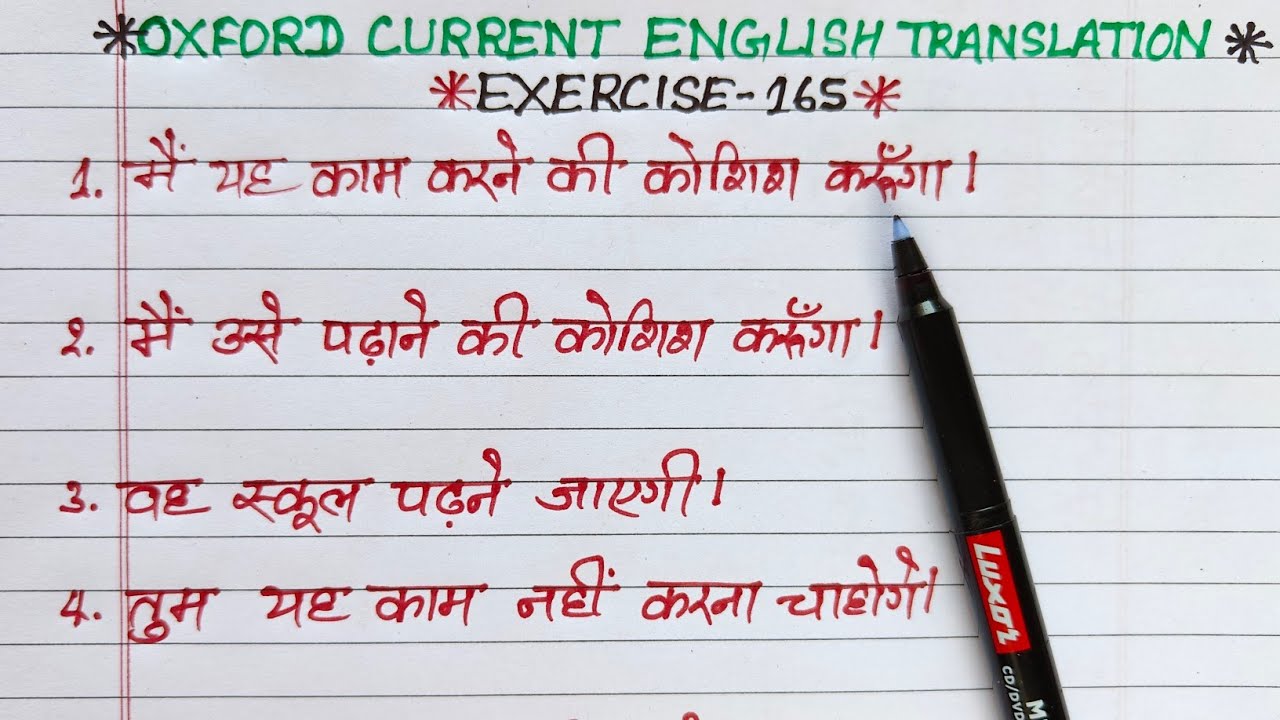 *OXFORD CURRENT ENGLISH TRANSLATION*
*EXERCISE-165*
1. मैं यह काम करने की कोशिश करूँगा।
2. मैं उसे पढ़ाने की कोशिश करूँगा।
3. वह स्कूल पढ़ने जाएगी।
4. तुम यह काम नहीं करना चाहोगे।
Luxor
CD/DVD